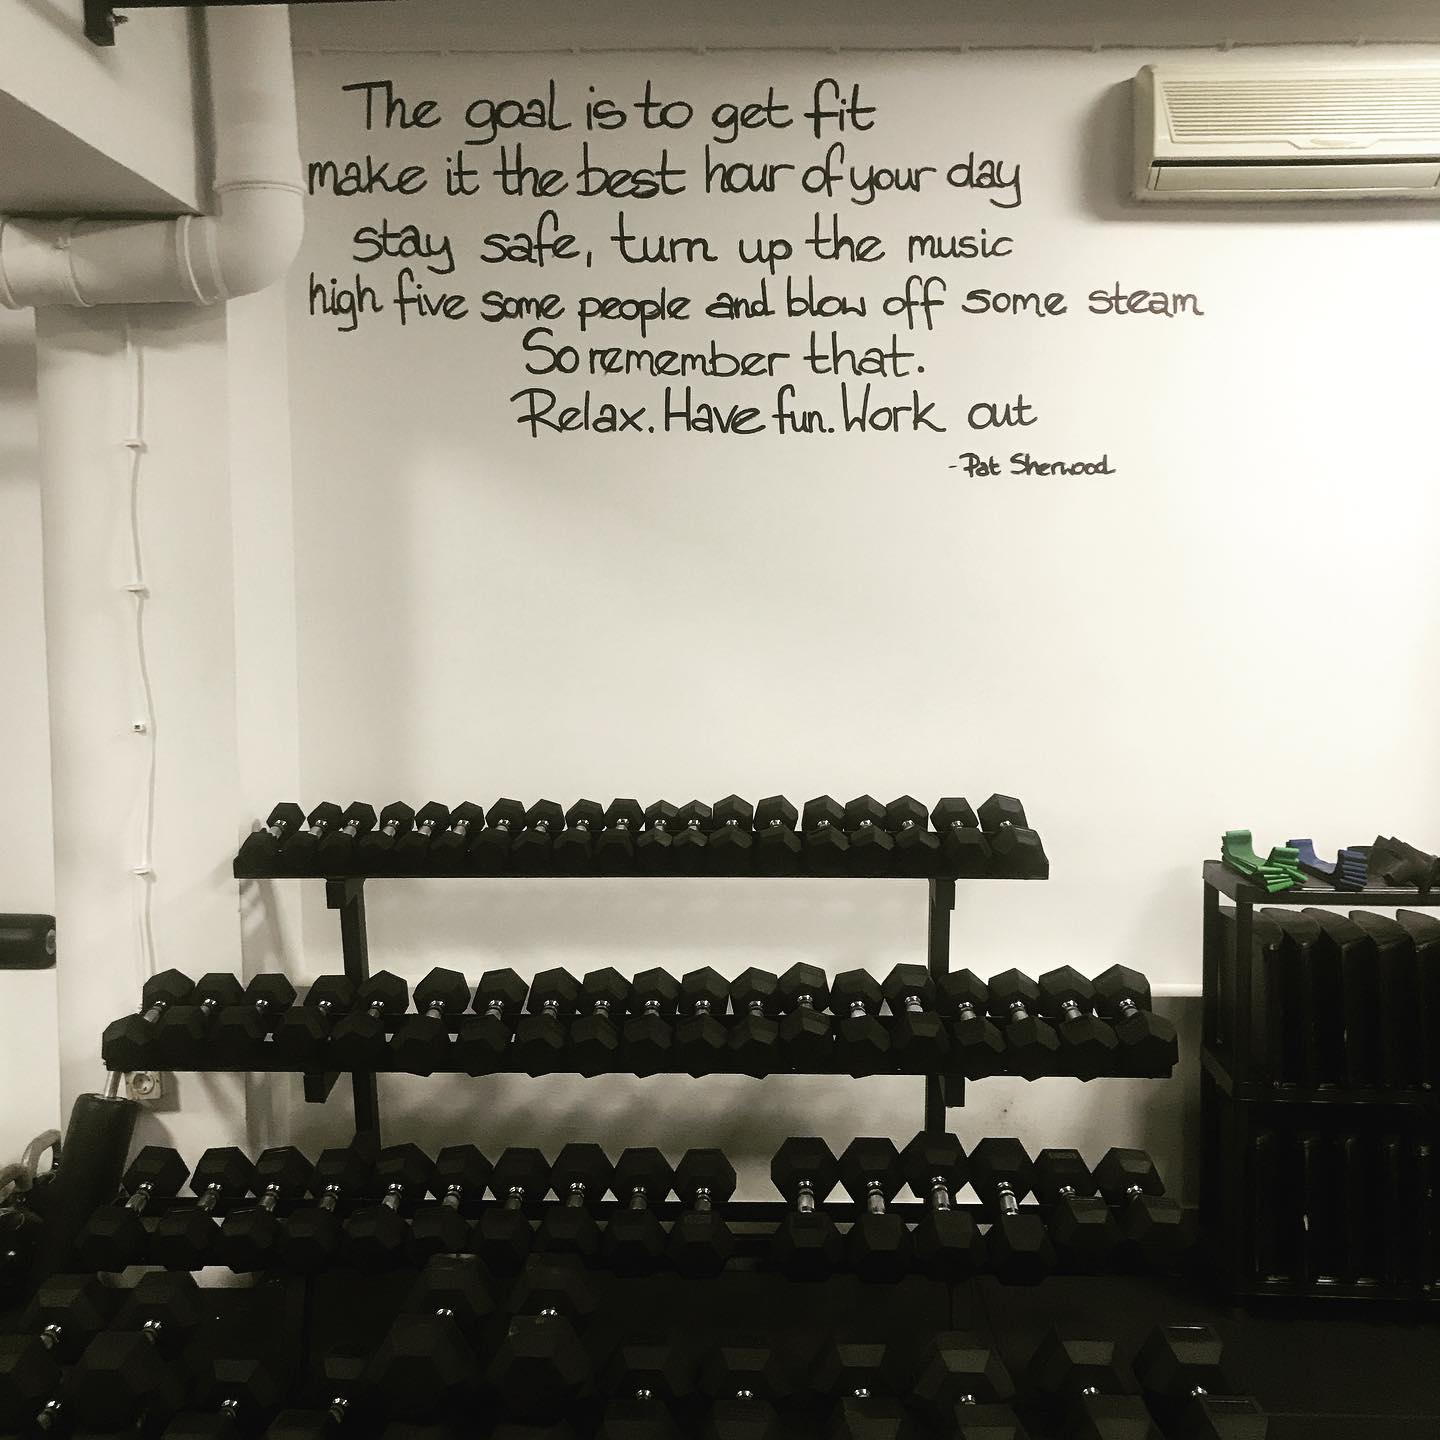 The goal is to get fit
make it the best hour of your day
stay safe, turn up the music
high five some people and blow off some steam
So remember that.
Relax. Have fun. Work out
-Pat Sherwood